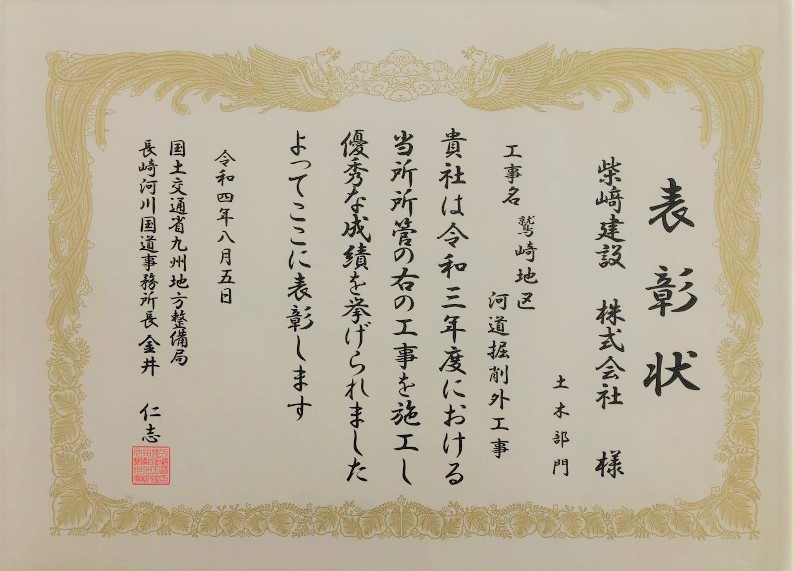 表彰状
柴﨑建設 株式会社 様
土木部門
工事名 鷲崎地区
河道掘削外工事
貴社は令和三年度における
当所所管の右の工事を施工し
優秀な成績を挙げられました
よってここに表彰します
令和四年八月五日
国土交通省九州地方整備局
長崎河川国道事務所長 金井 仁志